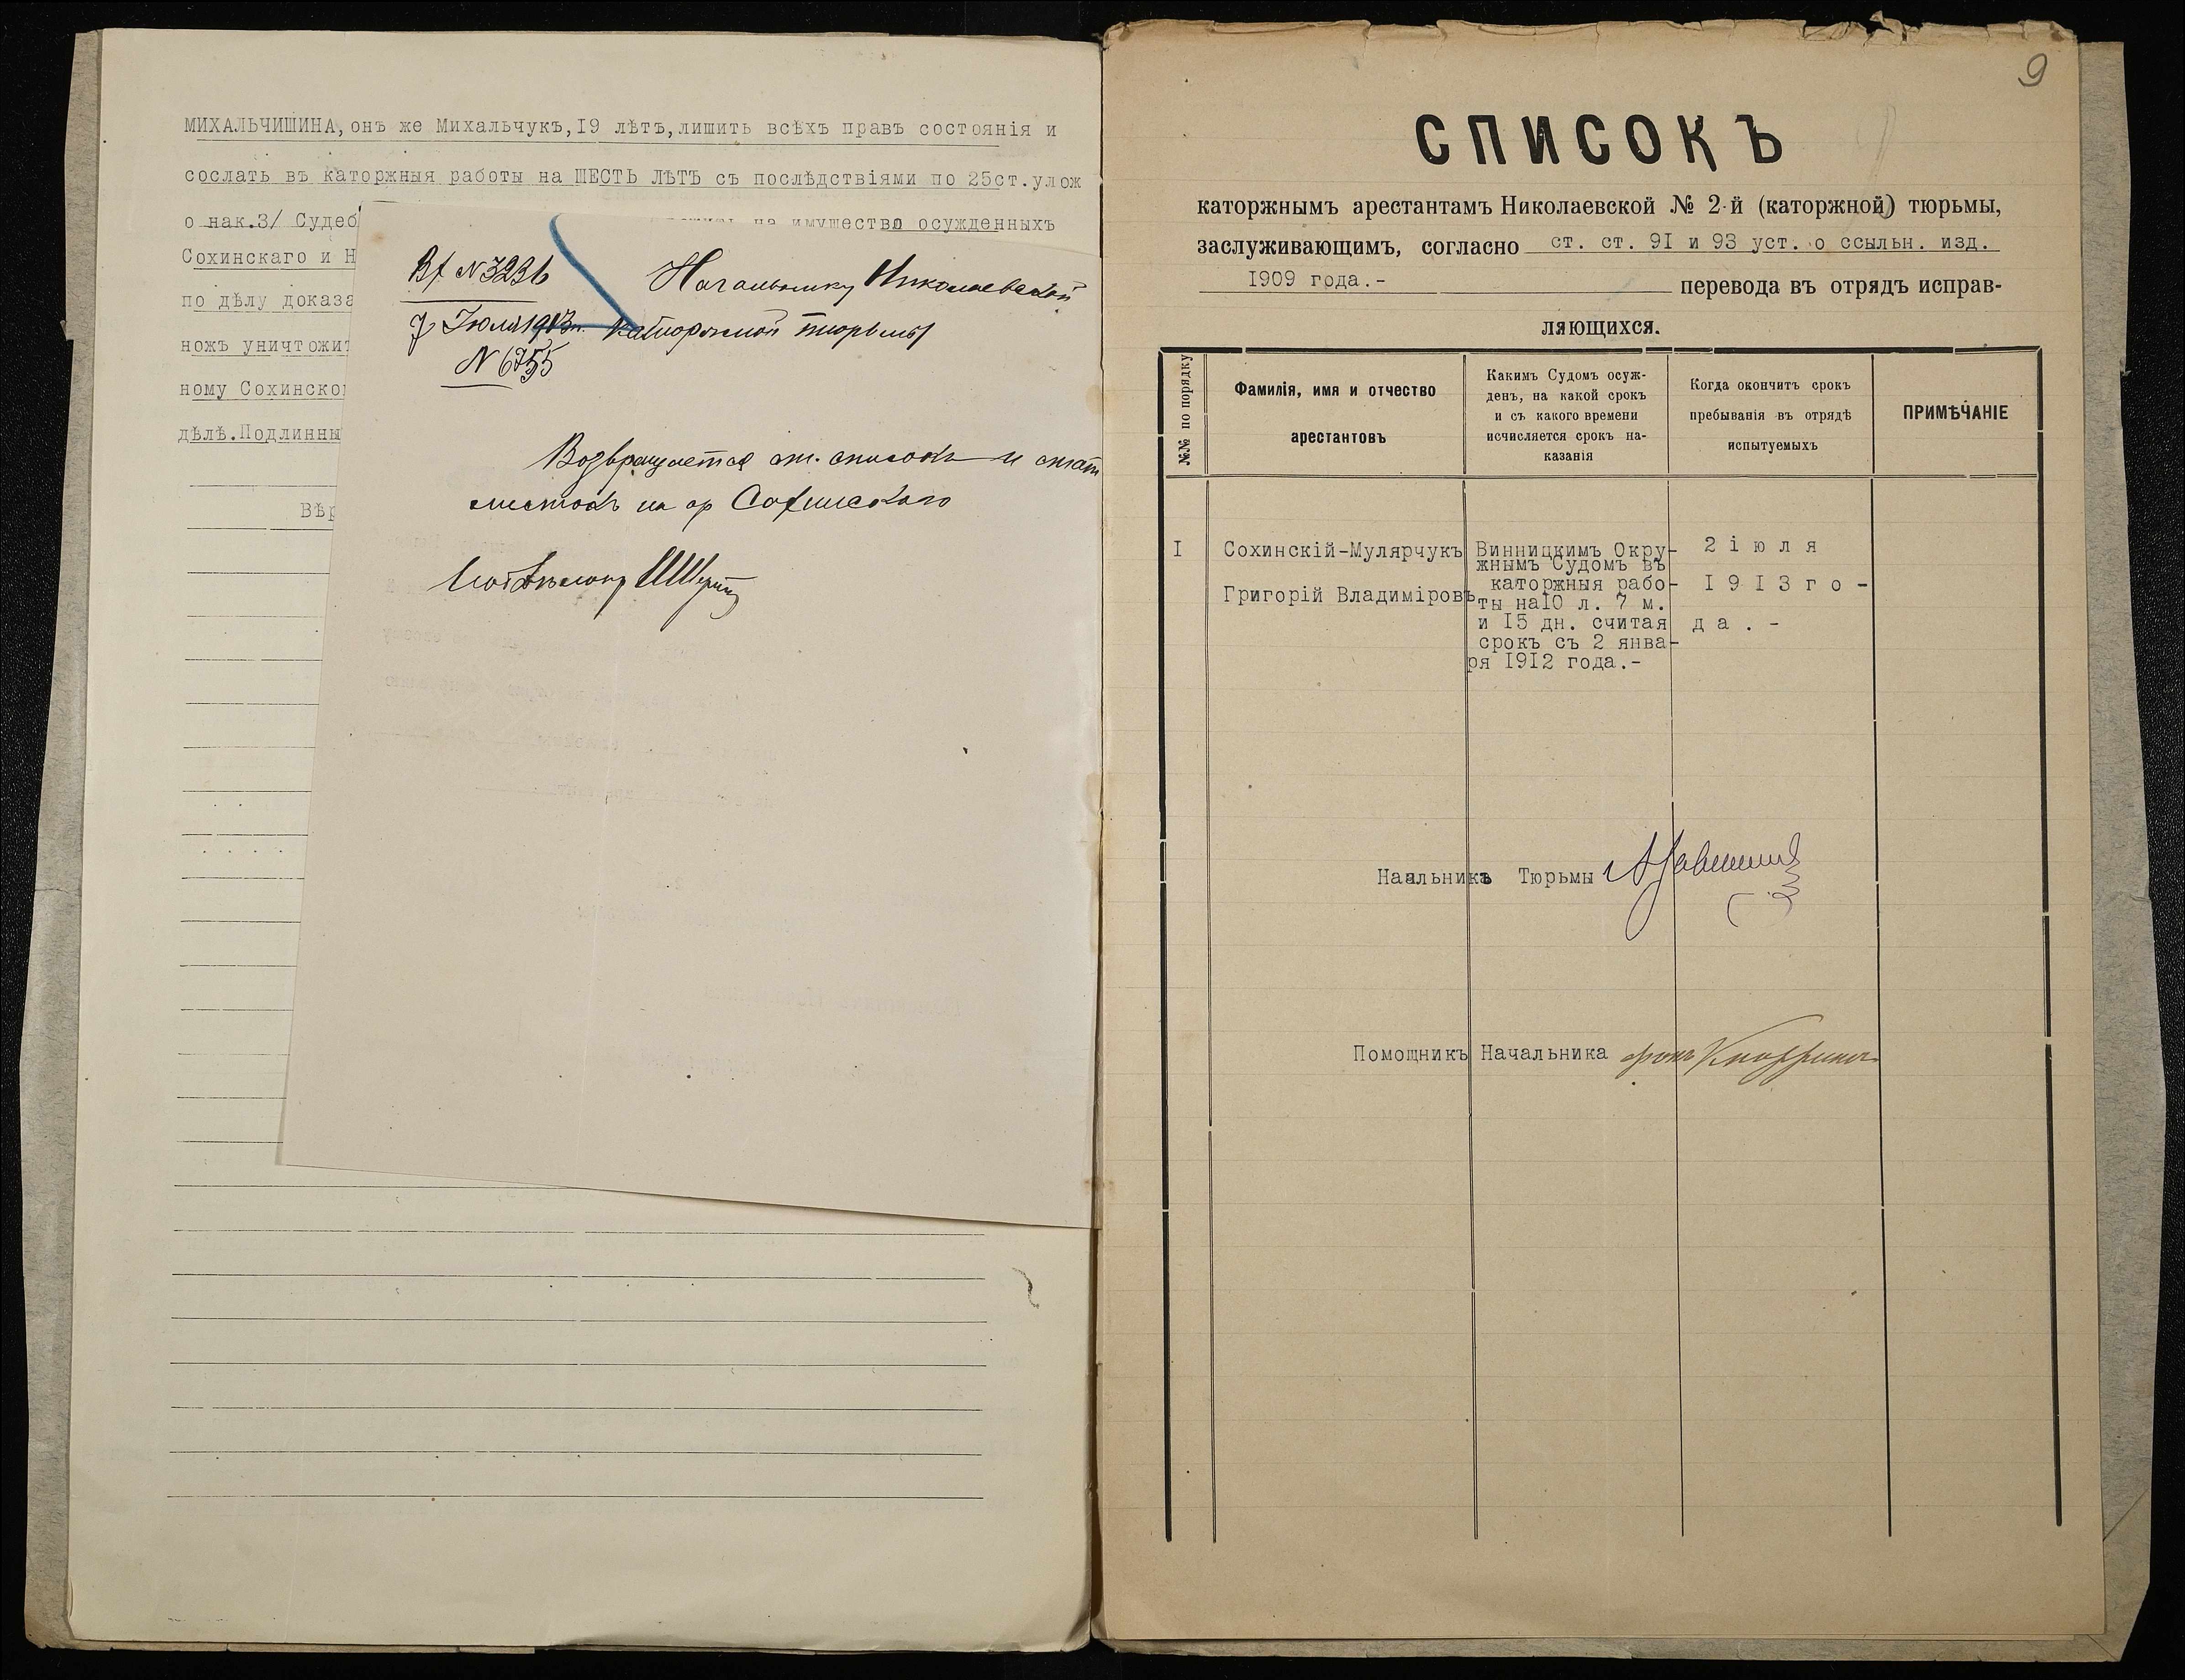 МИХАЛЬЧИШИНА, онъ же Михальчукъ, I9 лѣтъ, лишить всѣхъ правъ состоянія и
сослать въ каторжныя работы на ШЕСТЬ ЛѢТЪ съ послѣдствіями по 25ст.улож
о нак.3/ Судеб на имущество осужденныхъ
Сохинскаго и Н
по дѣлу доказа
ножъ уничтожит
ному Сохинско
дѣлѣ.Подлинны
Вѣр
Вх №3236
Іюля 1913 г.
№ 6755
Начальнику Николаевской
каторжной тюрьмы
Возвращается ст. списокъ и стат
листокъ на ар Сохинскаго
9
СПИСОКЪ
каторжнымъ арестантамъ Николаевской № 2-й (каторжной) тюрьмы,
заслуживающимъ, согласно ст. ст. 9I и 93 уст. о ссыльн. изд.
1909 года.- перевода въ отрядъ исправ-
ляющихся.
№№ по порядку
Фамилія, имя и отчество
арестантовъ
Какимъ Судомъ осуж-
денъ, на какой срокъ
и съ какого времени
исчисляется срокъ на-
казанія
Когда окончитъ срокъ
пребыванія въ отрядѣ
испытуемыхъ
ПРИМѢЧАНІЕ
I
Сохинскій-Мулярчукъ
Григорій Владиміровъ
Винницкимъ Окру-
жнымъ Судомъ въ
каторжныя рабо-
ты наI0 л. 7 м.
и I5 дн. считая
срокъ съ 2 янва-
ря I9I2 года.-
2 і ю л я
I 9 I 3 г о -
д а . -
Начльникъ Тюрьмы
Помощникъ Начальника фонъ Кноррингъ